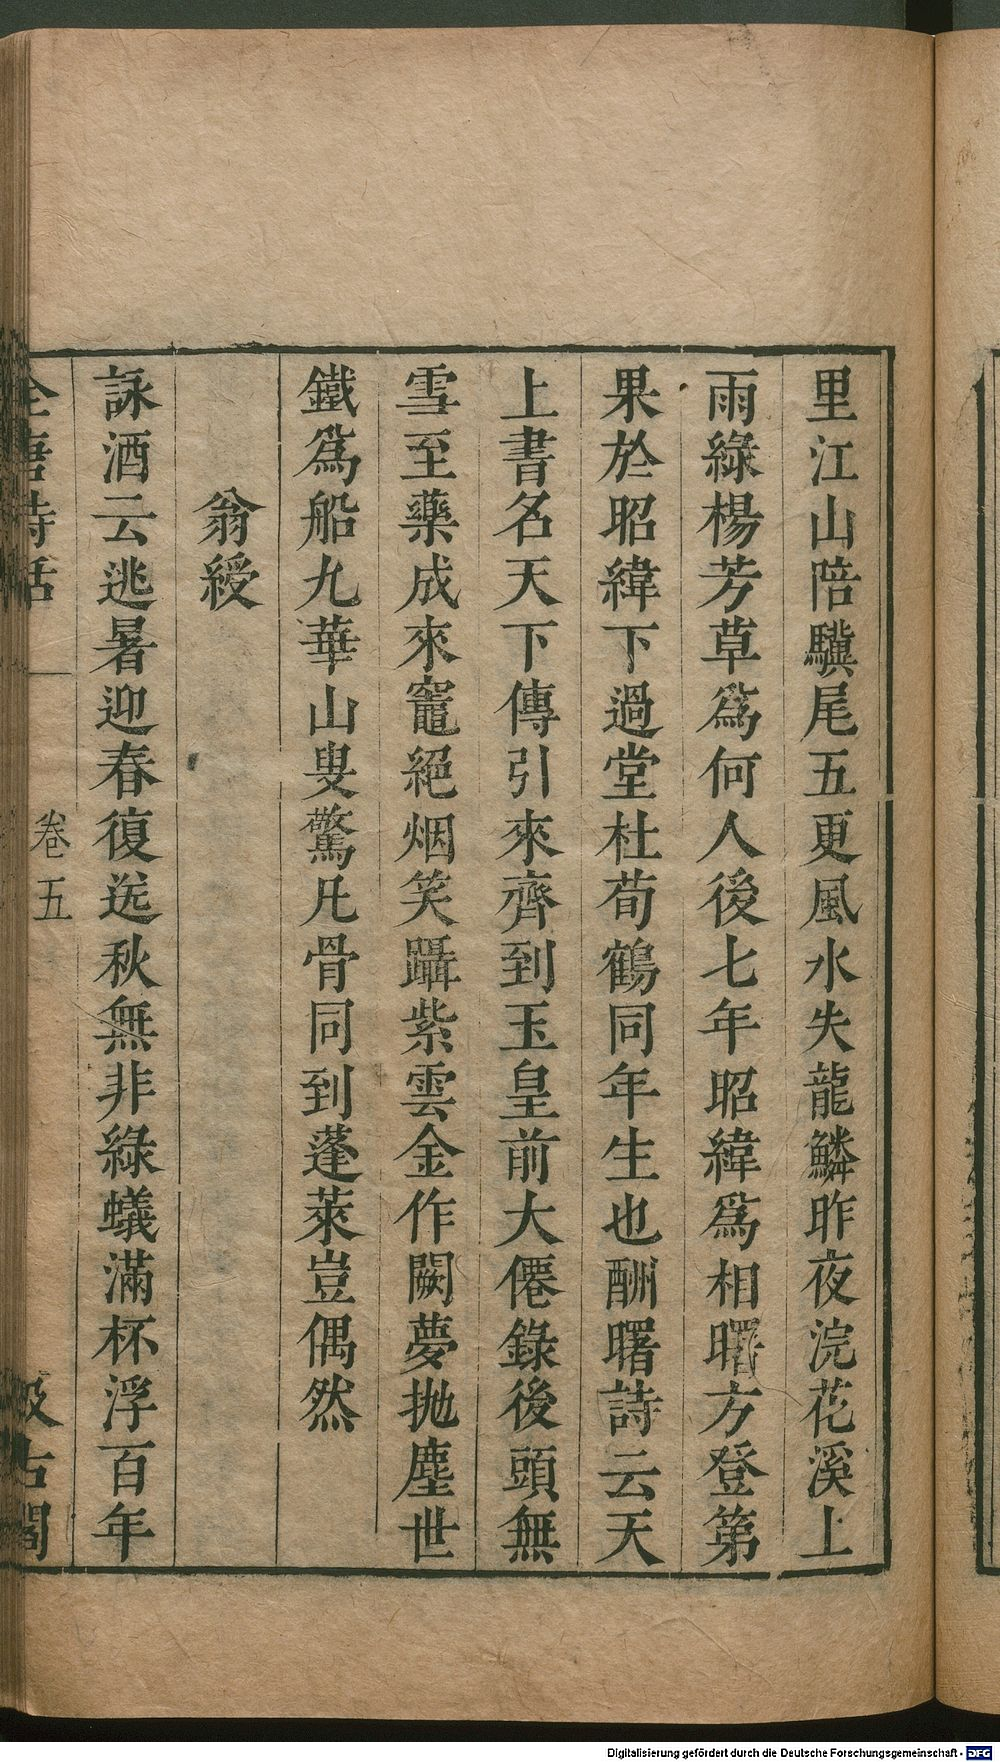 里江山陪驥尾五更風水失龍鱗昨夜浣花溪上
雨綠楊芳草爲何人後七年昭緯爲相曙方登第
果於昭緯下過堂杜荀鶴同年生也酬曙詩云天
上書名天下傳引來齊到玉皇前大僊錄後頭無
雪至藥成來竈絕烟笑躡紫雲金作闕夢抛塵世
鐵爲船九華山叟驚凡骨同到蓬萊豈偶然
翁綬
詠酒云逃暑迎春復送秋無非綠蟻滿杯浮百年
全唐詩話
卷五
汲古閣
Digitalisierung gefördert durch die Deutsche Forschungsgemeinschaft - DFG